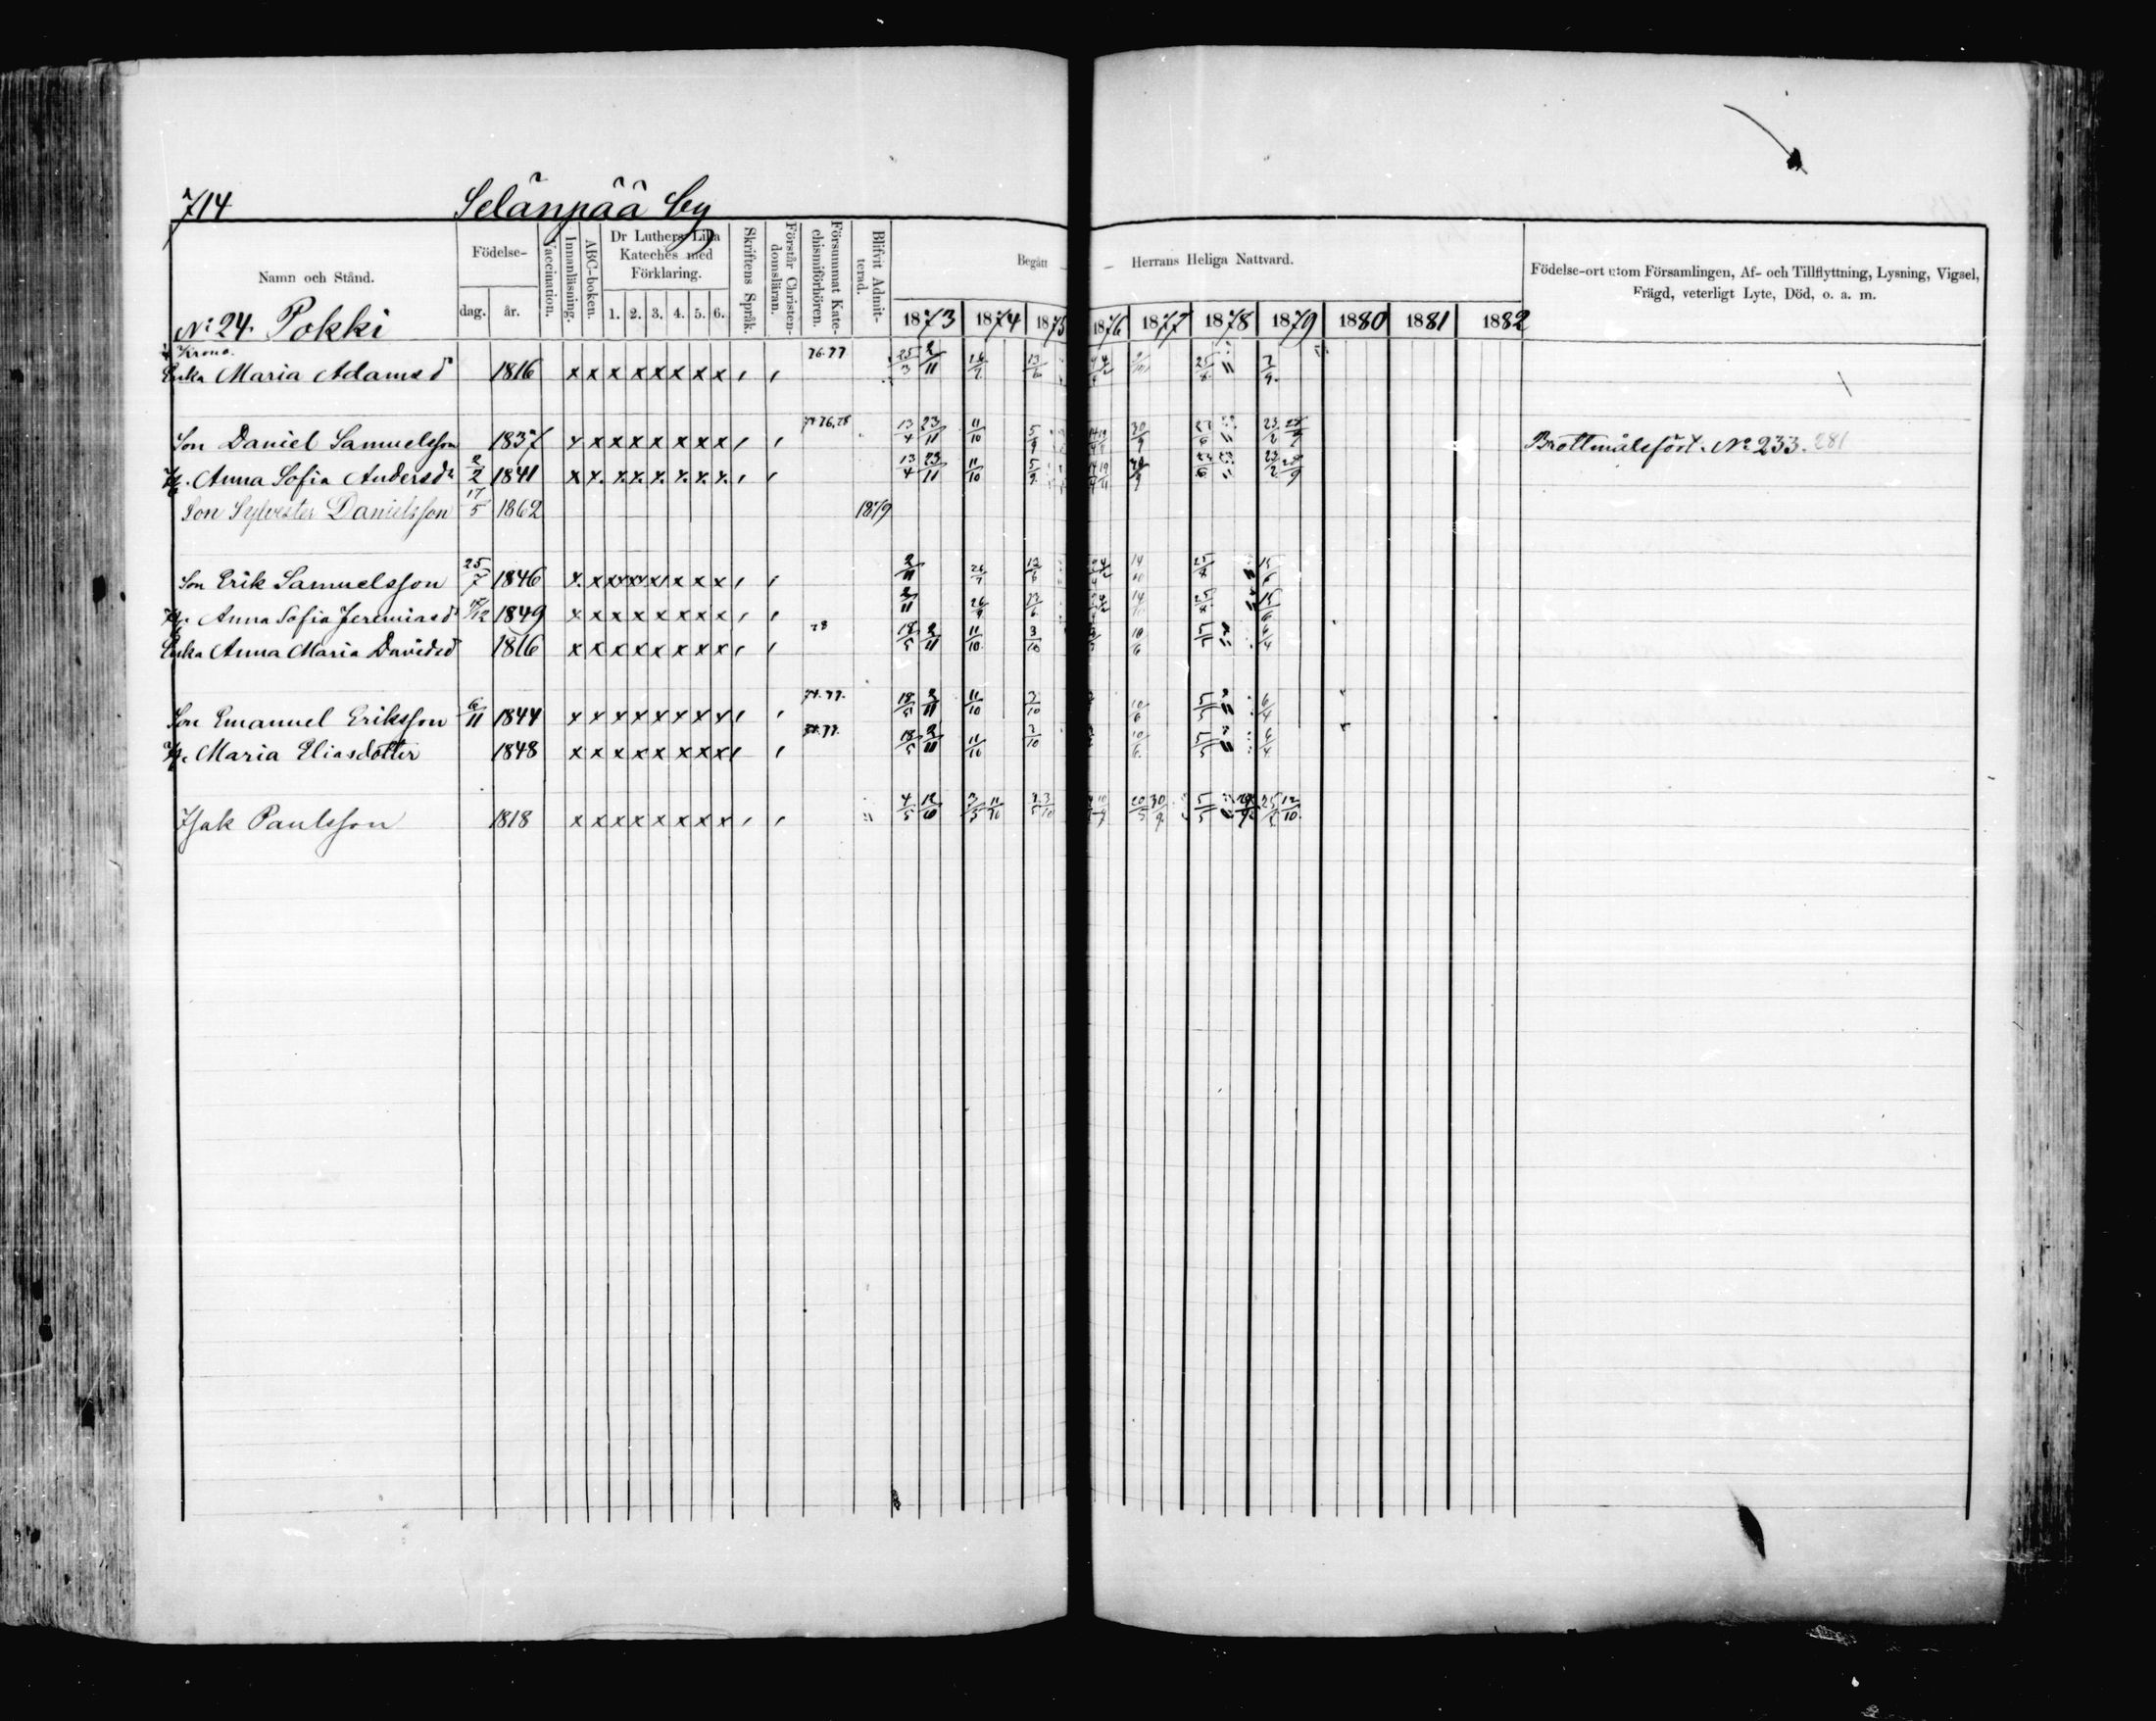 714 Selänpää by
Namn och Stånd.
Födelse-
dag. år.
Vaccination.
Innanläsning.
ABC-boken.
Dr Luthers Lilla
Kateches med
Förklaring.
1. 2. 3. 4. 5. 6.
Skriftens Språk.
Förstår Christen-
domsläran.
Försummat Kate-
chismiförhören.
Blifvit Admit-
terad.
Begått Herrans Heliga Nattvard.
1873 1874 1875 1876 1877 1878 1879 1880 1881 1882
Födelse-ort utom Församlingen, Af- och Tillflyttning, Lysning, Vigsel,
Frägd, veterligt Lyte, Död, o. a. m.
No 24. Pokki
Krono.
Enka Maria Adamsd 1816 x x x x x x x x 76.77 25/3 2/11
Son Daniel Samuelsson 1837 x x x x x x x x 13/4 23/11 11/10 5/9 30/9 Brottmålsfört. No 233. 281
H. Anna Sofia Andersdr 2/2 1841 x x x x x x x x 13/4 23/11 11/10 5/9 30/9
Son Sylvester Danielsson 17/5 1862 1879
Son Erik Samuelsson 25/7 1846 x x x x x x x x 2/11
H. Anna Sofia Jeremiasdr 1849 x x x x x x x x 2/11
Enka Anna Maria Davidsd 1816 x x x x x x x x 78 18/5 2/11 11/10 3/10 10/6 5/5 6/4
Son Emanuel Eriksson 6/11 1844 x x x x x x x x 18/5 2/11 11/10 3/10 10/6 5/5 6/4
H. Maria Eliasdotter 1848 x x x x x x x x 18/5 2/11 11/10 3/10 10/6 5/5 6/4
Isak Paulsson 1818 x x x x x x x x 4/5 12/10 3/5 11/10 20/5 30/9 5/5 12/10